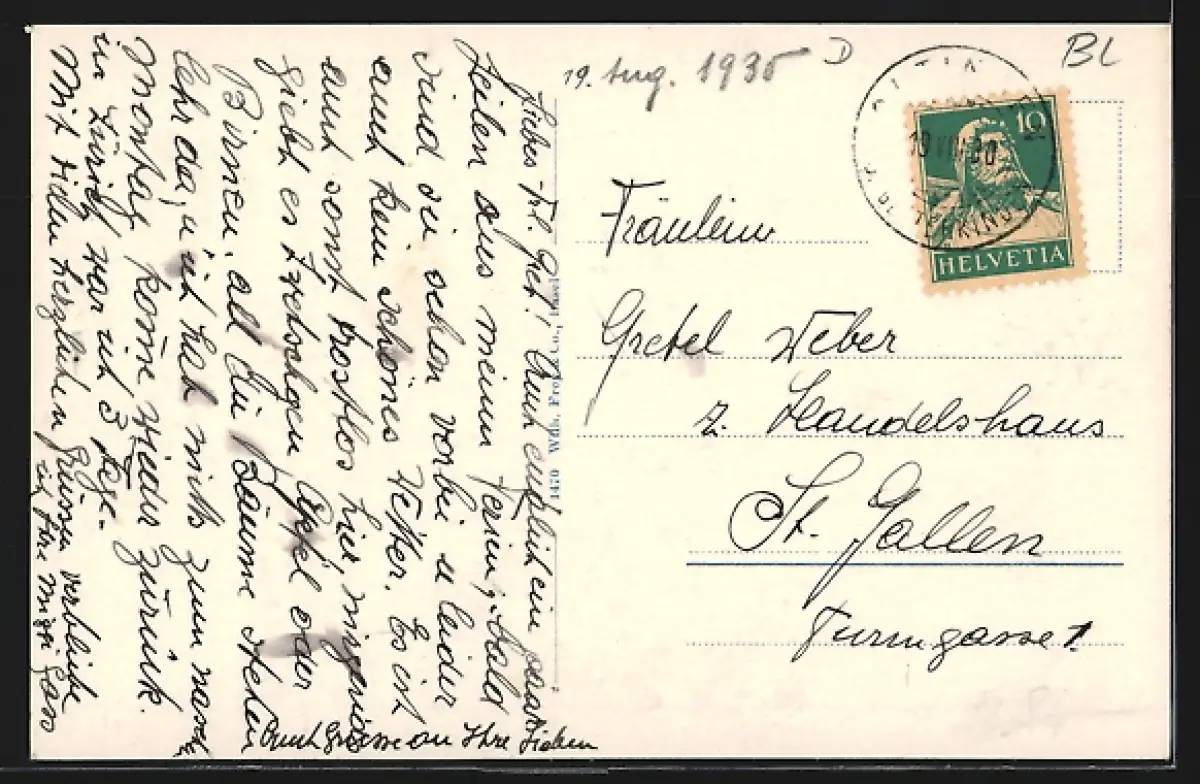 19. Aug. 1930
D
BL
10
HELVETIA
Fräulein
Gretel Weber
z. Handelshaus
St. Gallen
Turmgasse 1
1470 Wilh. Co., Basel
Liebes Frl. Gret! Auch endlich ein paar
Zeilen aus meinen Ferien, bald
sind sie schon vorbei u leider
auch kein schönes Wetter. Es ist
auch sonst trostlos hier, nirgends
giebt es Zwetschgen Äpfel oder
Birnen, all die Bäume stehen
lehr da, u ich hab nichts zum nasch
Montag komme wieder zurück.
in Zürich war ich 3 Tage.
Mit vielen herzlichen Grüssen verbleibe
ich Ihre
Auch Grüsse an Ihre Lieben